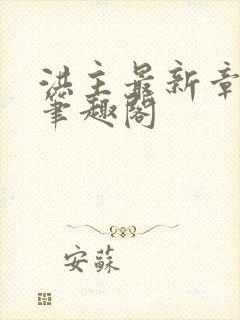 洪主最新章
笔趣阁
安蘇